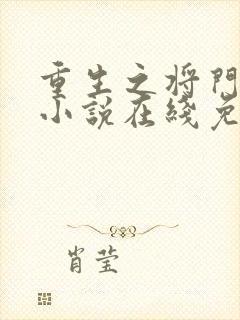 重生之将門
小説在綫免
肖莹